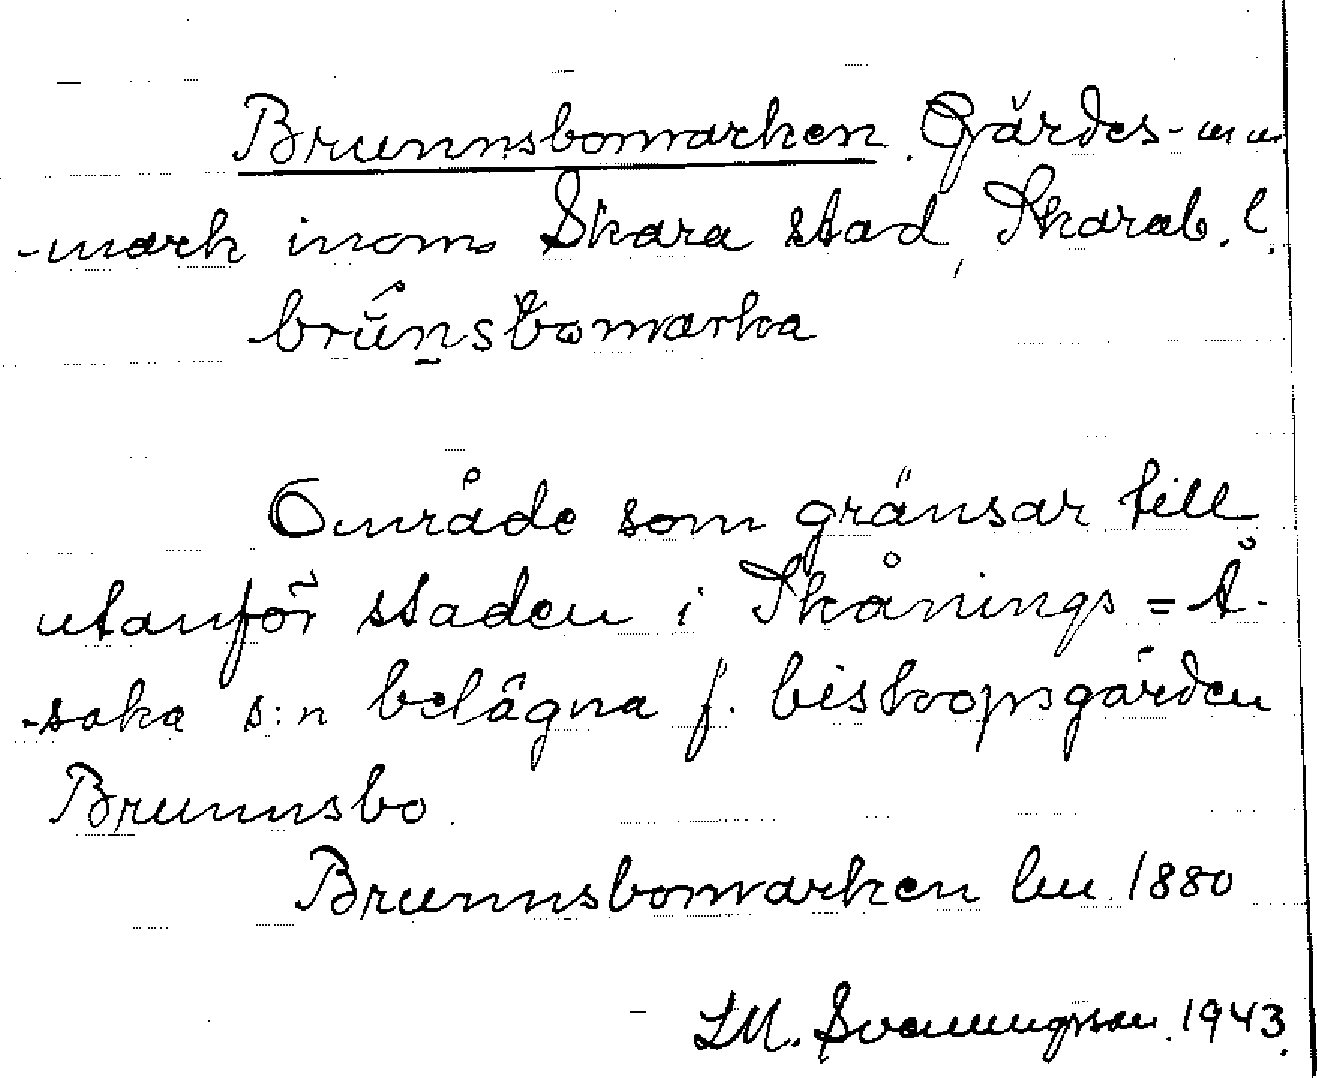 Brunnsbomarken. Gärdes- m m
-mark inom Skara stad, Skarab. l.
brúnsbomarka
Område som gränsar till
utanför staden i Skånings=Å-
-saka s:n belägna f. biskopsgården
Brunnsbo.
Brunnsbomarken lm 1880
LM. Svenungsson 1943.